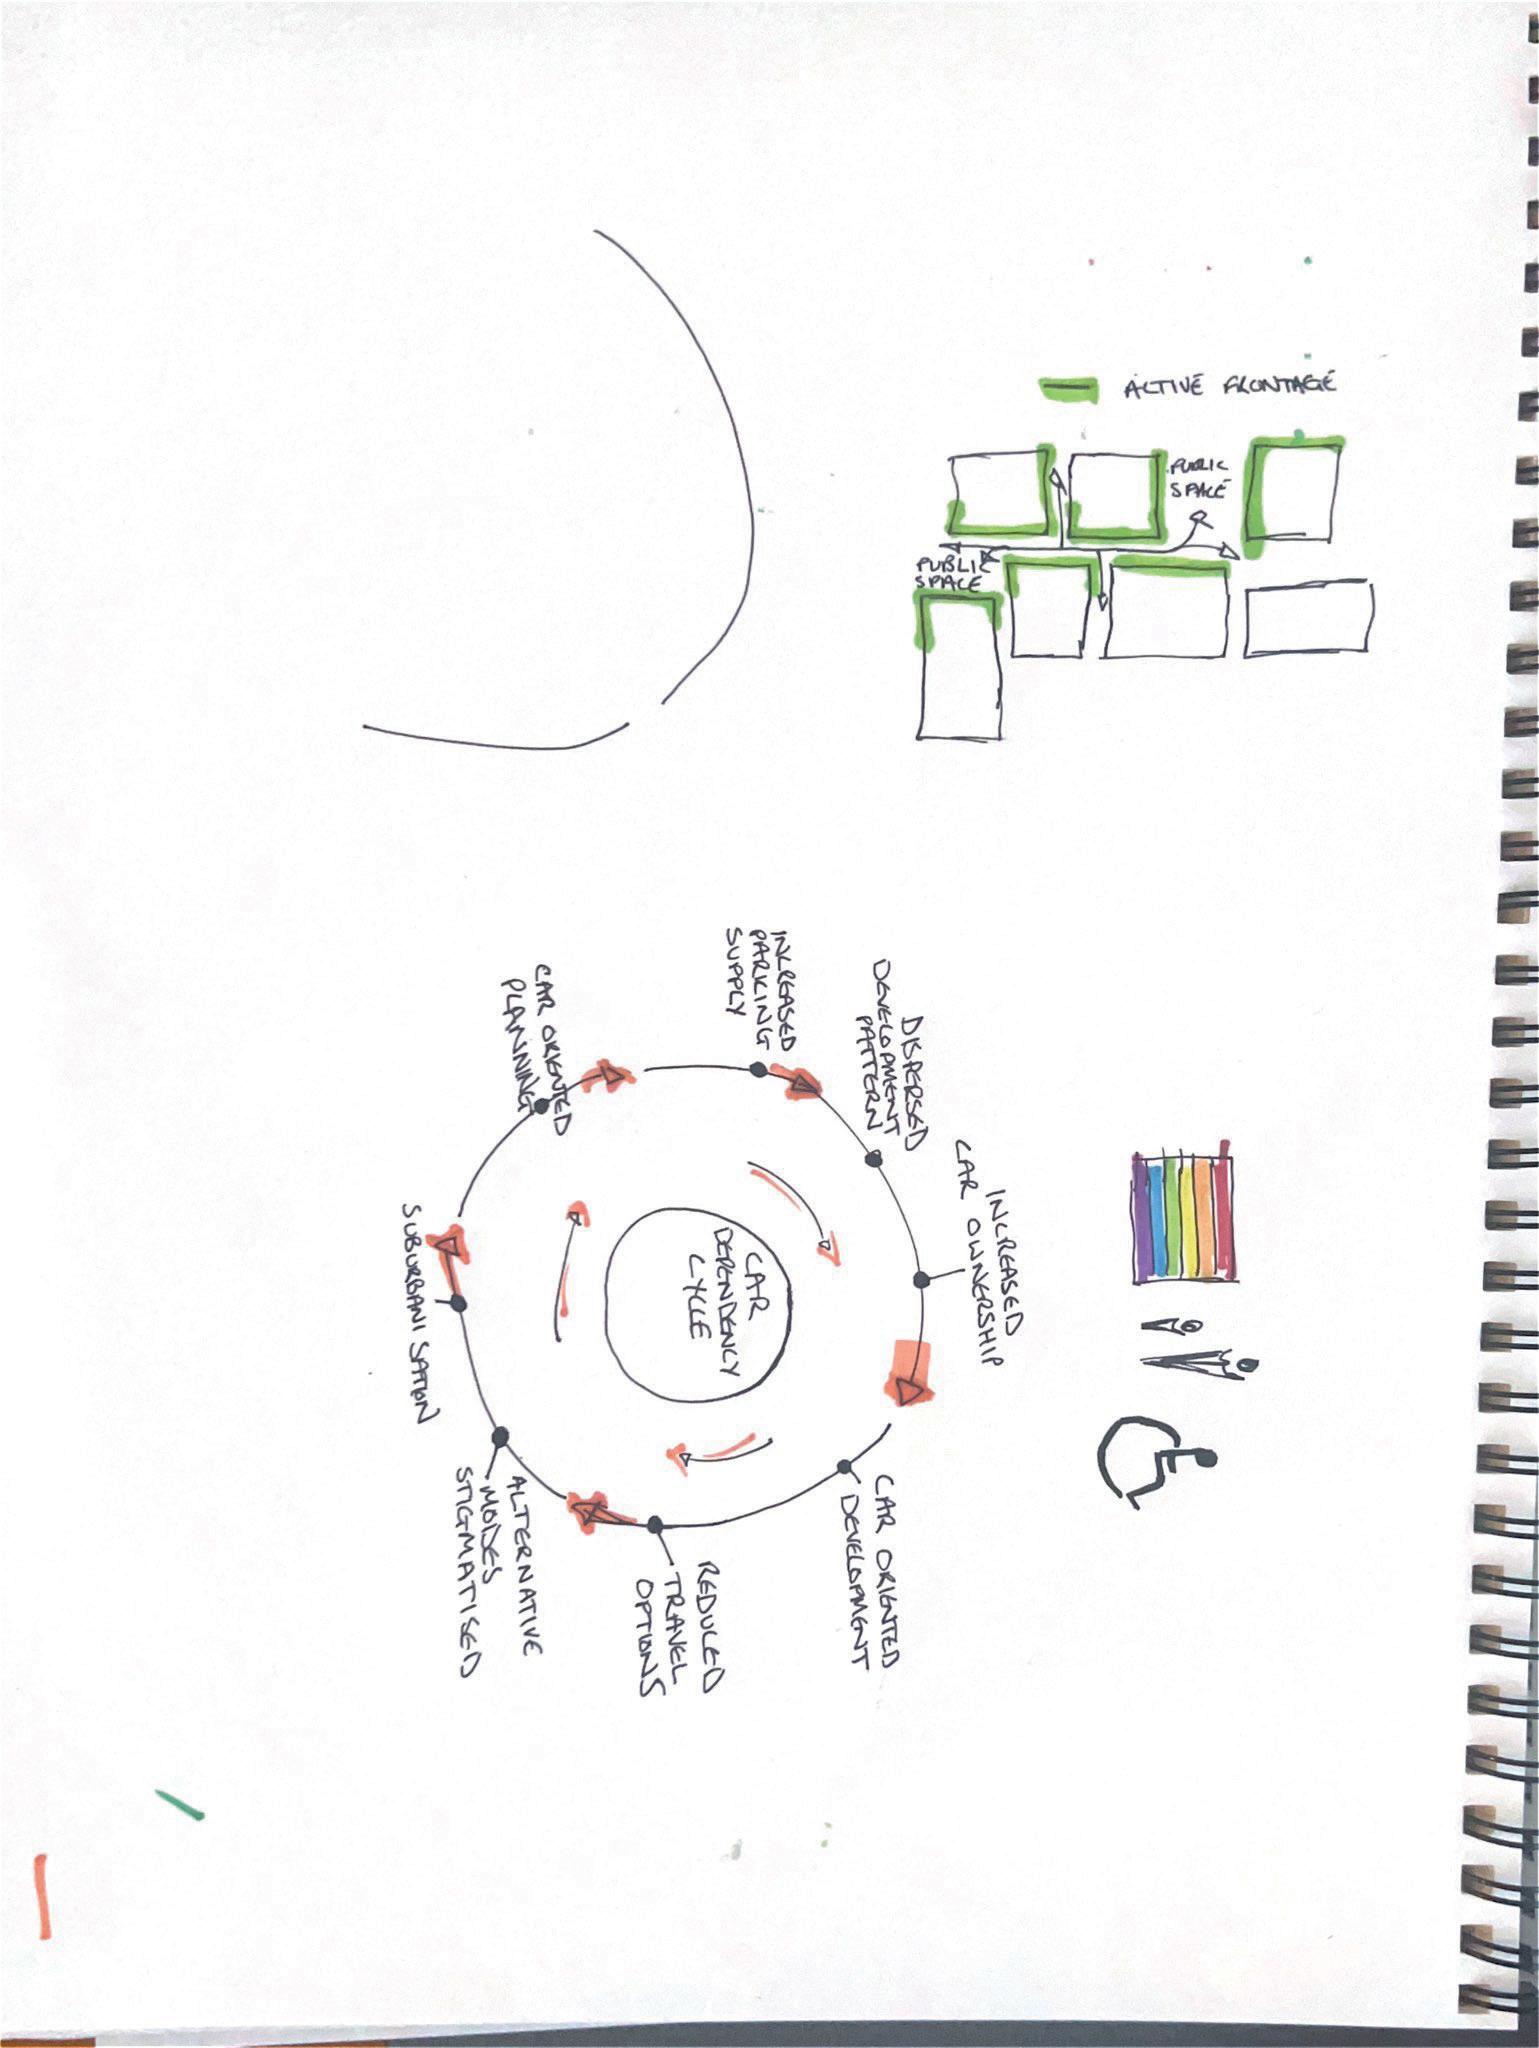 ACTIVE FRONTAGE
PUBLIC
SPACE
PUBLIC
SPACE
CAR
DEPENDENCY
CYCLE
INCREASED
CAR OWNERSHIP
CAR ORIENTED
DEVELOPMENT
REDUCED
TRAVEL
OPTIONS
ALTERNATIVE
MODES
STIGMATISED
SUBURBANISATION
CAR ORIENTED
PLANNNING
INCREASED
PARKING
SUPPLY
DISPERSED
DEVELOPMENT
PATTERN